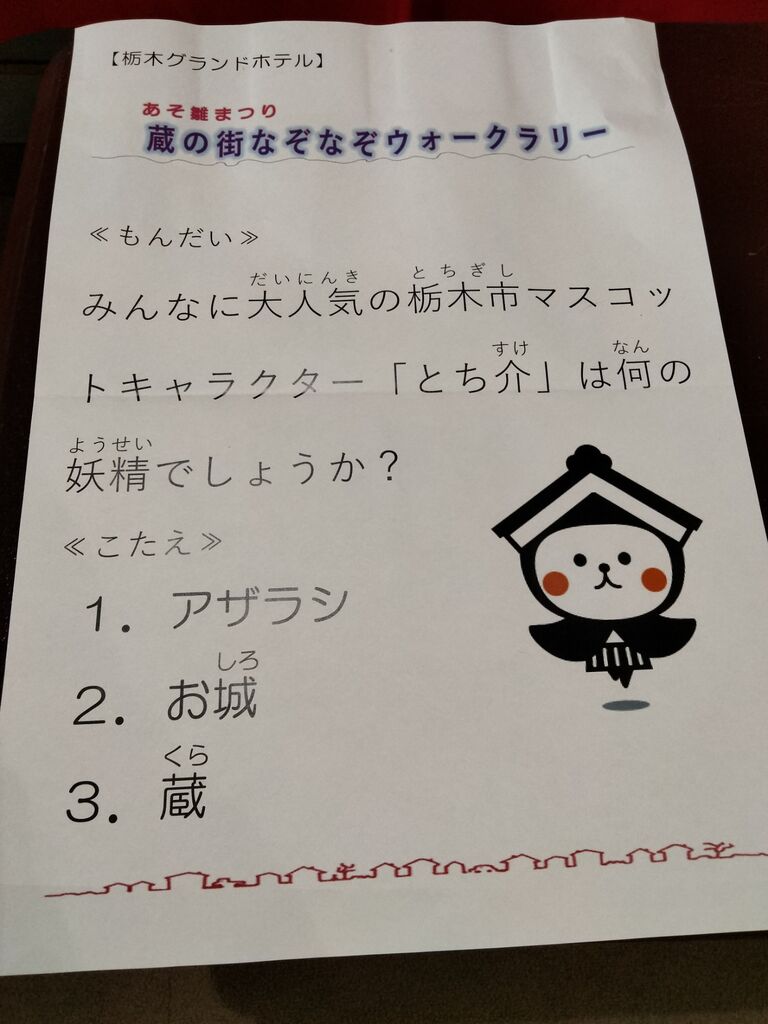 【栃木グランドホテル】
あそ雛まつり
蔵の街なぞなぞウォークラリー
≪もんだい≫
だいにんき とちぎし
みんなに大人気の栃木市マスコッ
すけ なん
トキャラクター「とち介」は何の
ようせい
妖精でしょうか？
≪こたえ≫
1．アザラシ
しろ
2．お城
くら
3．蔵